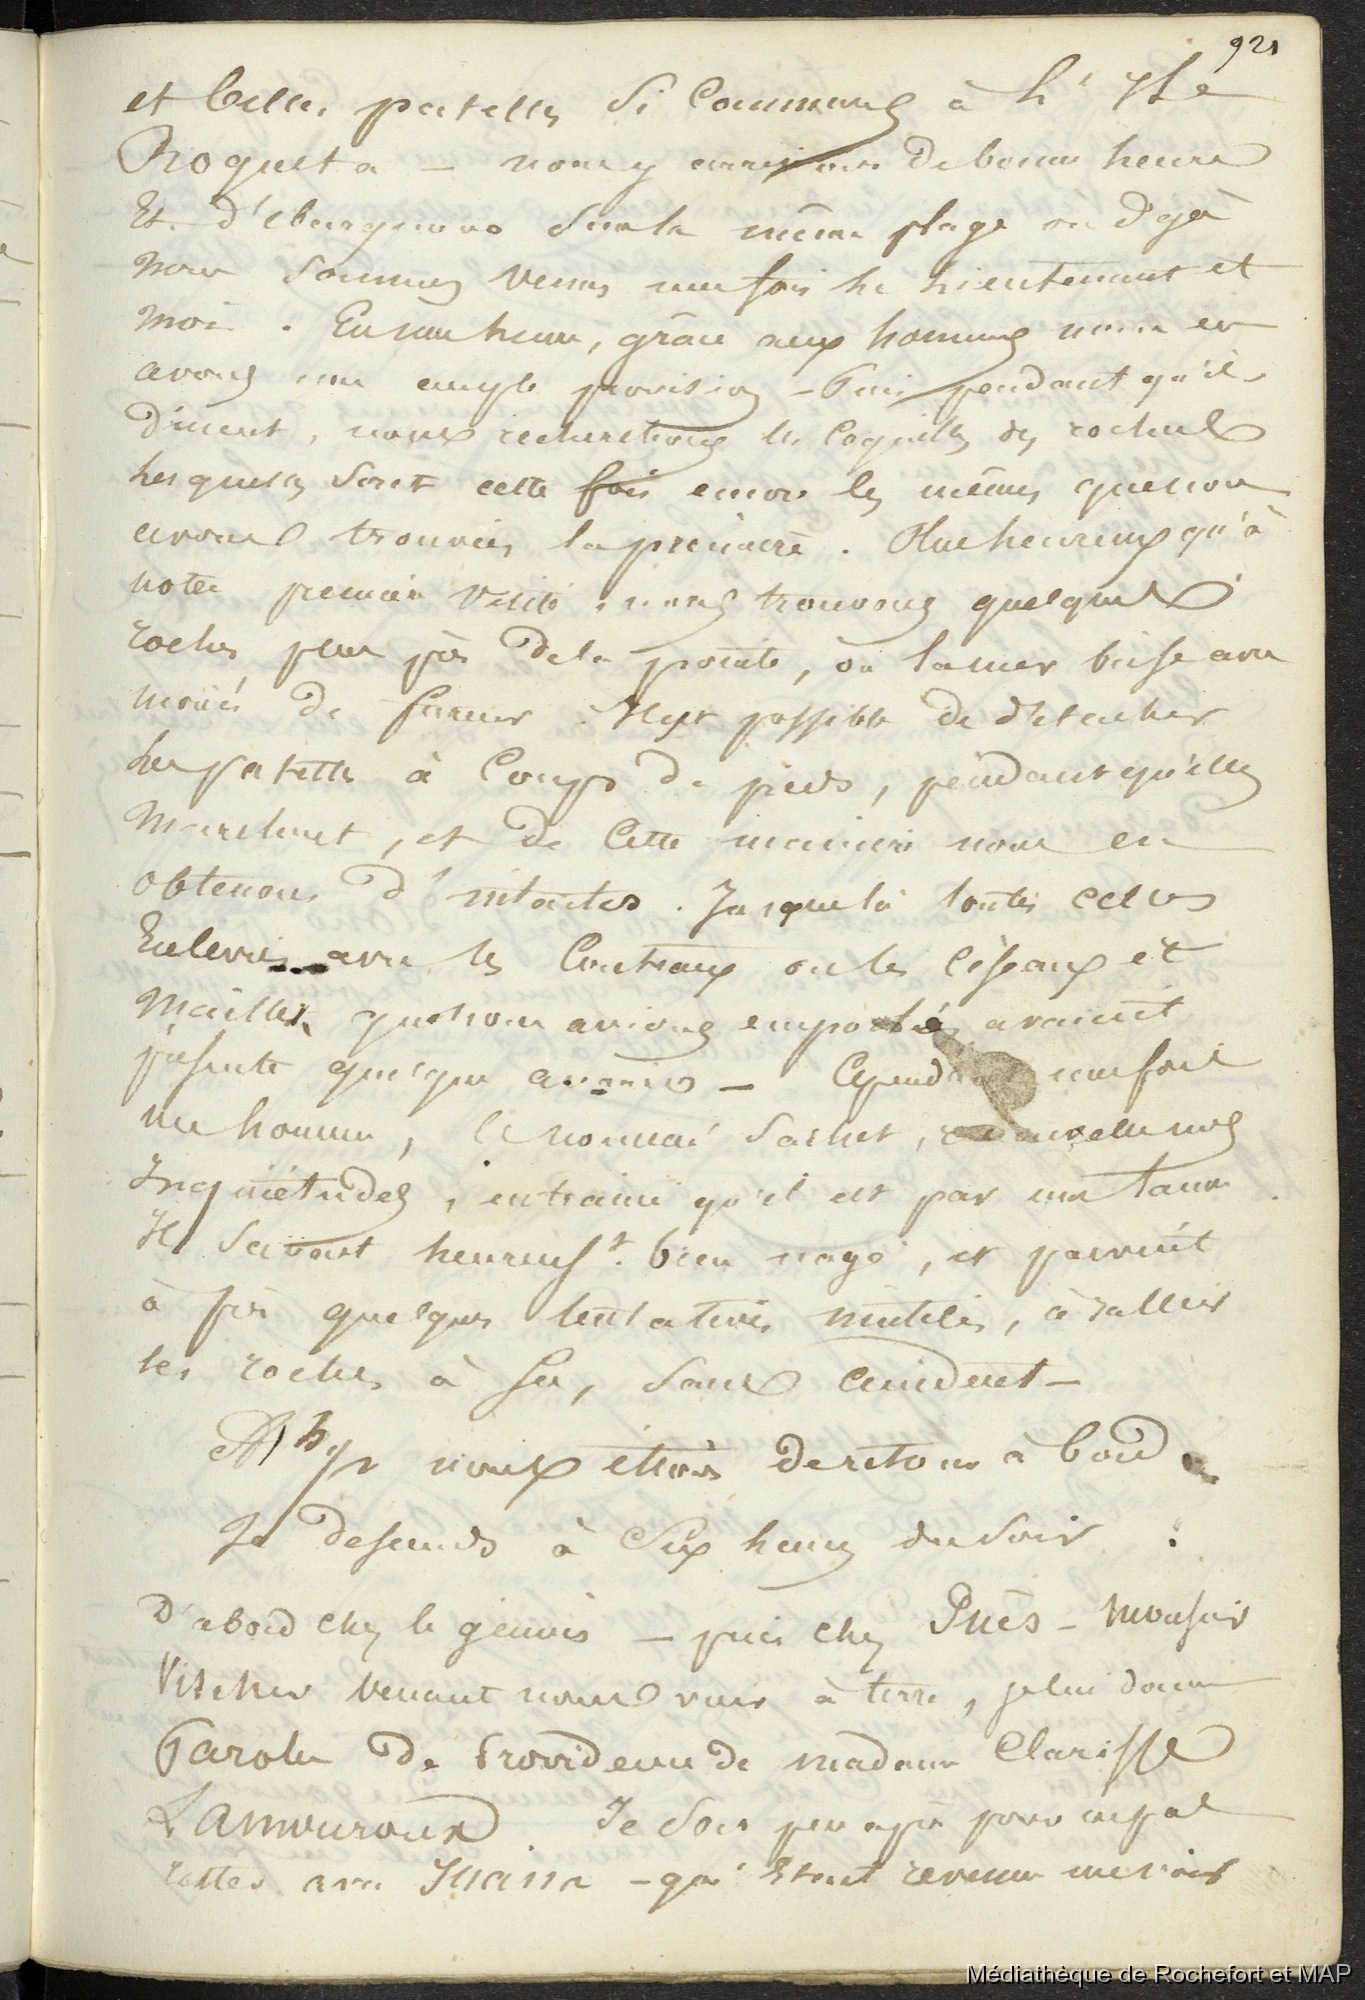 921
et belles patelles si communes à l'Isle
Roqueta — nous y arrivons de bonne heure
Et d'ébarquons sur la même plage où déjà
nous sommes venus une fois le lieutenant et
moi . En une heure, grâce aux hommes nous en
avons une ample provision — Puis pendant qu'ils
dînent, nous recherchons les coquilles des roches
lesquelles sont cette fois encore les mêmes que nous
avons trouvées la première . Plus heureux qu'à
notre première visite , nous trouvons quelques
roches, plus près de la pointe, où la mer brise avec
moins de fureur . Il est possible de détacher
les patelles à coups de pieds, pendant qu'elles
marchent, et de cette manière nous en
obtenons d'intactes . Jusque là toutes celles
Enlevées avec les couteaux ou les ciseaux et
maillets que nous avions emportés avaient
présenté quelque avaries — Cependant une fois
un homme, le nommé Sachet, renouvelle nos
Inquiétudes, entrainé qu'il est par une lame .
Il savait heureust. bien nager, et parvint
à près quelques tentatives inutiles, à rallier
les roches à sec, sans accident —
A 1h 1/2 nous étions de retour à bord
Je descends à six heures du soir :
D'abord chez le génois — puis chez Inès — Monsieur
Vischer venant nous voir à terre, je lui donne
Parole de Providence de madame Clarisse
Lamouroux . Je sors peu après pour
rester avec Juana — qui Etant revenue me voir
Médiathèque de Rochefort et MAP